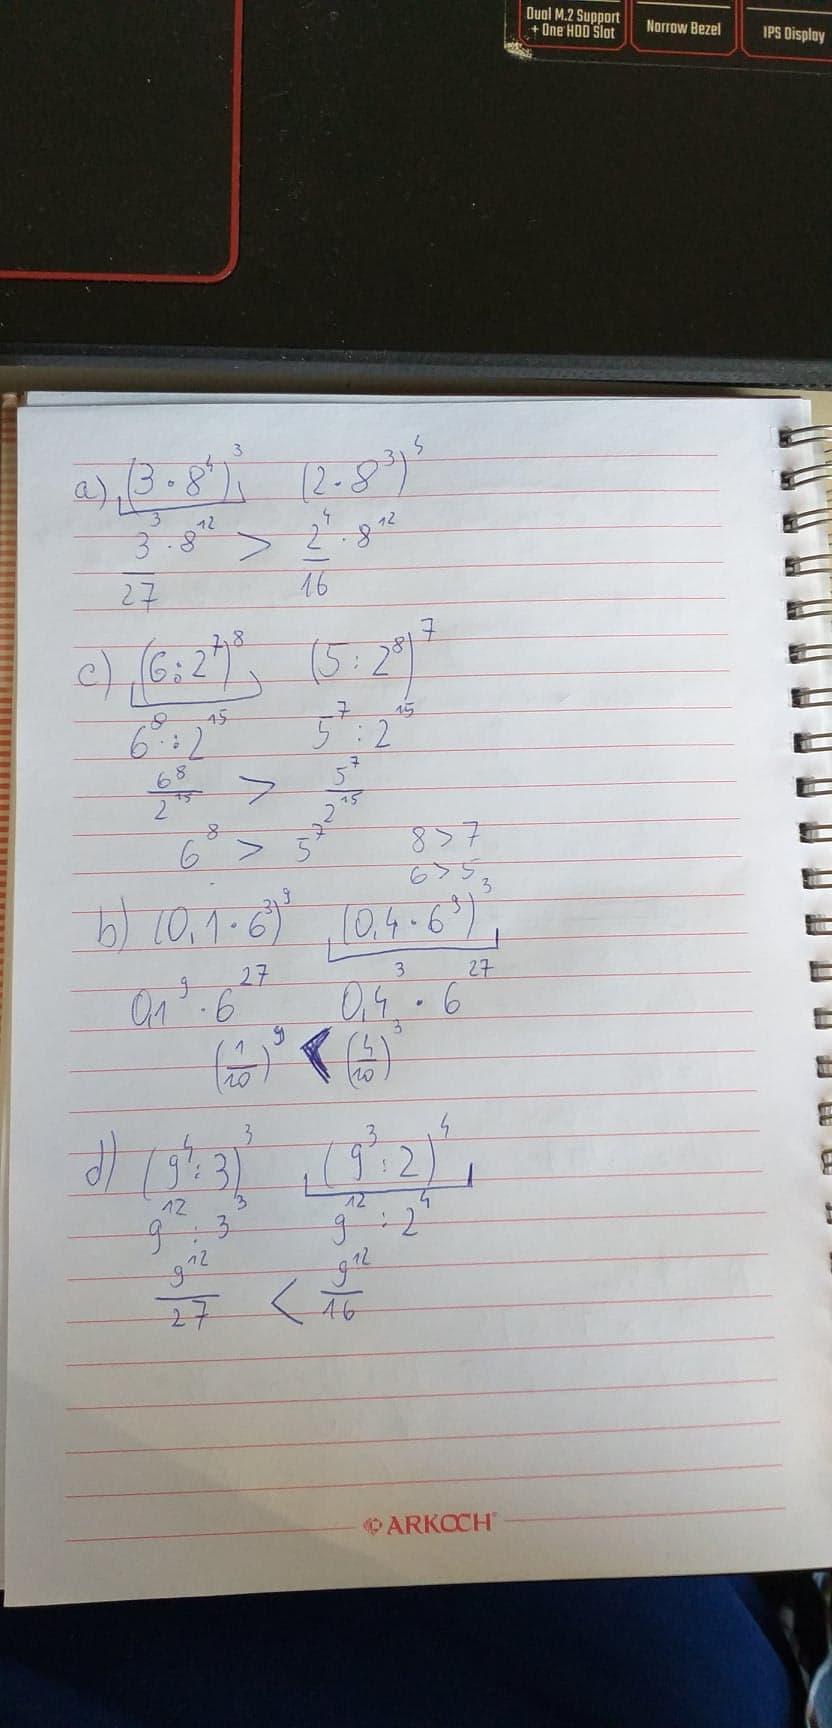 Dual M.2 Support
+ One HDD Slot
Narrow Bezel
IPS Display
a) (3 · 8⁴)³ (2 · 8³)⁴
3³ · 8¹² > 2⁴ · 8¹²
27 16
c) (6 : 2⁷)⁸ (5 : 2⁸)⁷
6⁸ : 2¹⁵ 5⁷ : 2¹⁵
6⁸/2¹⁵ > 5⁷/2¹⁵
6⁸ > 5⁷ 8 > 7
6 > 5
b) (0,1 · 6³)⁹ (0,4 · 6⁹)³
0,1⁹ · 6²⁷ 0,4³ · 6²⁷
(1/10)⁹ < (4/10)³
d) (9⁴ : 3)³ (9³ : 2)⁴
9¹² : 3³ 9¹² : 2⁴
9¹²/27 < 9¹²/16
ARKOCH